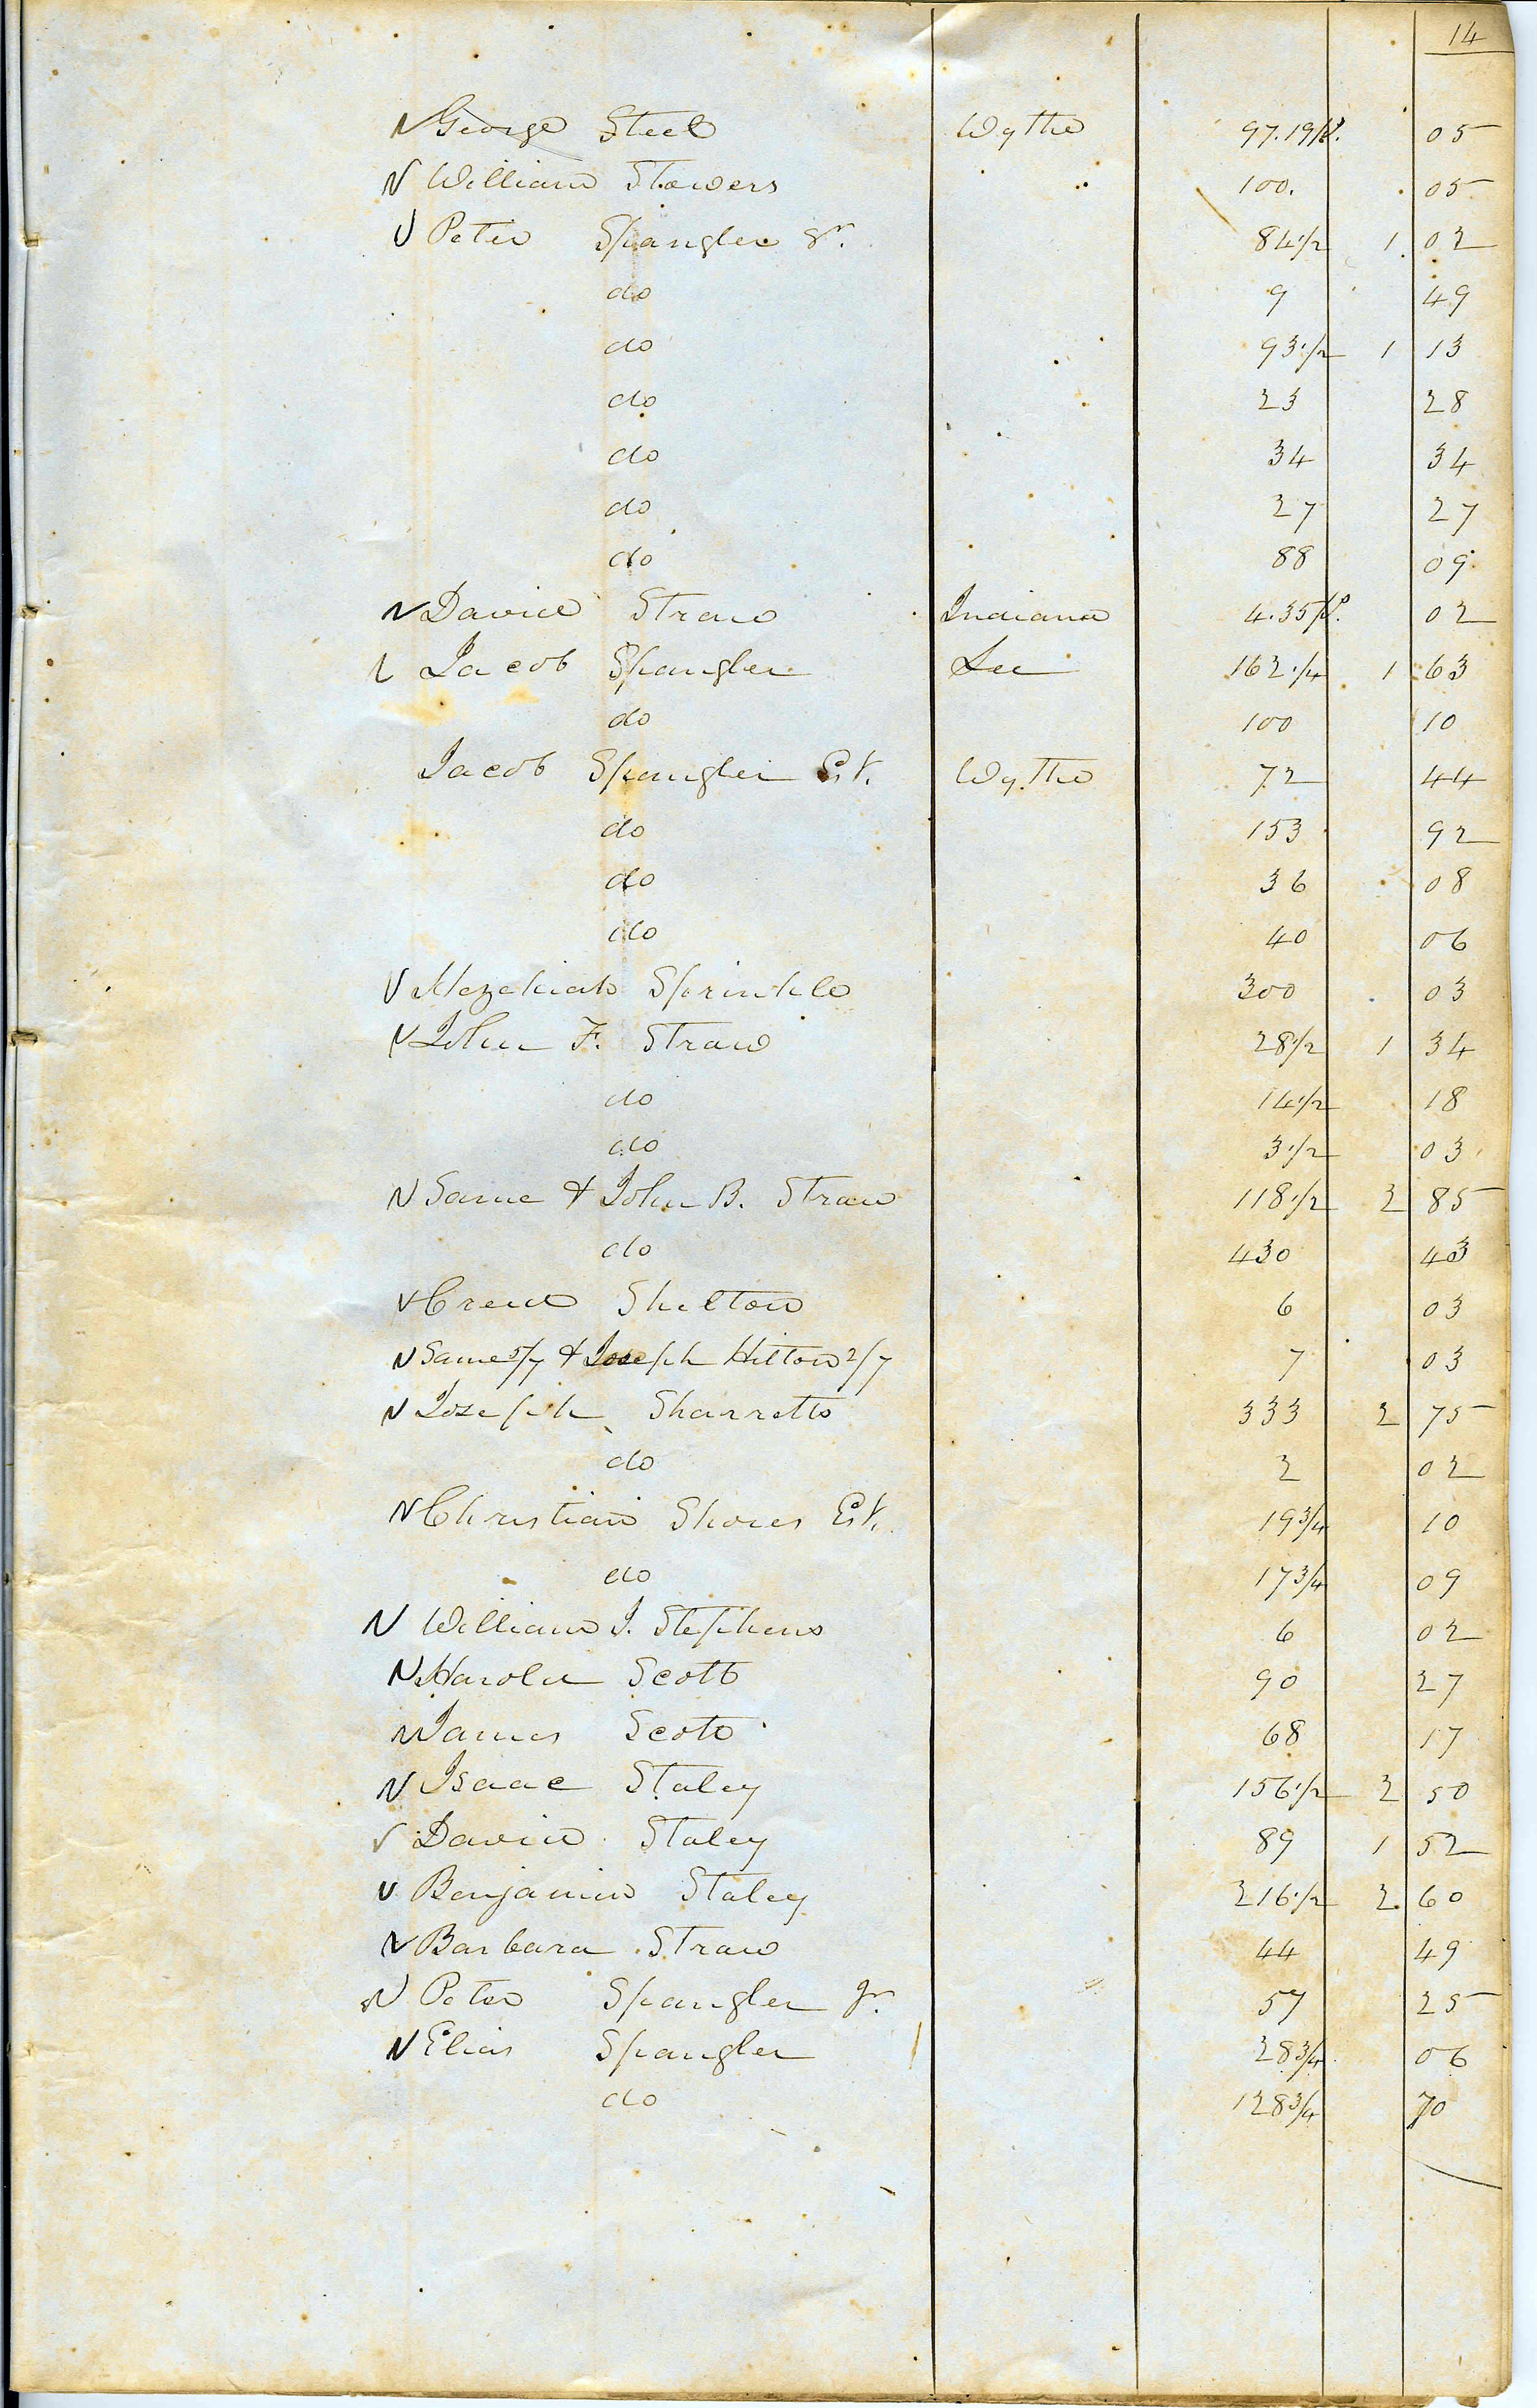 14
George Steel Wythe 97.19 p. 05
William Stowers 100. 05
Peter Spangler Sr. 84 1/2 1 02
do 9 49
do 93 1/2 1 13
do 23 28
do 34 34
do 27 27
do 88 09
David Straw Indiana 4.35 p. 02
Jacob Spangler Lee 162 1/4 1 63
do 100 10
Jacob Spangler Est. Wythe 72 44
do 153 92
do 36 08
do 40 06
Hezekiah Sprinkle 300 03
John F. Straw 28 1/2 1 34
do 14 1/2 18
do 3 1/2 03
Same & John B. Straw 118 1/2 2 85
do 430 43
Creed Shelton 6 03
Same 5/7 & Joseph Hilton 2/7 7 03
Joseph Sharretts 333 2 75
do 2 02
Christian Shores Est. 19 3/4 10
do 17 3/4 09
William J. Stephens 6 02
Harold Scott 90 27
James Scott 68 17
Isaac Staley 156 1/2 2 50
David Staley 89 1 52
Benjamin Staley 216 1/2 2 60
Barbara Straw 44 49
Peter Spangler Jr. 57 25
Elias Spangler 28 3/4 06
do 128 3/4 70